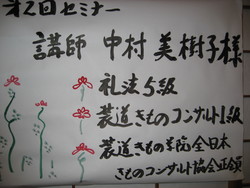 第2回セミナー
講師 中村美樹子様
礼法5級
装道きものコンサルト1級
装道きもの学院全日本
きものコンサルト協会正会員